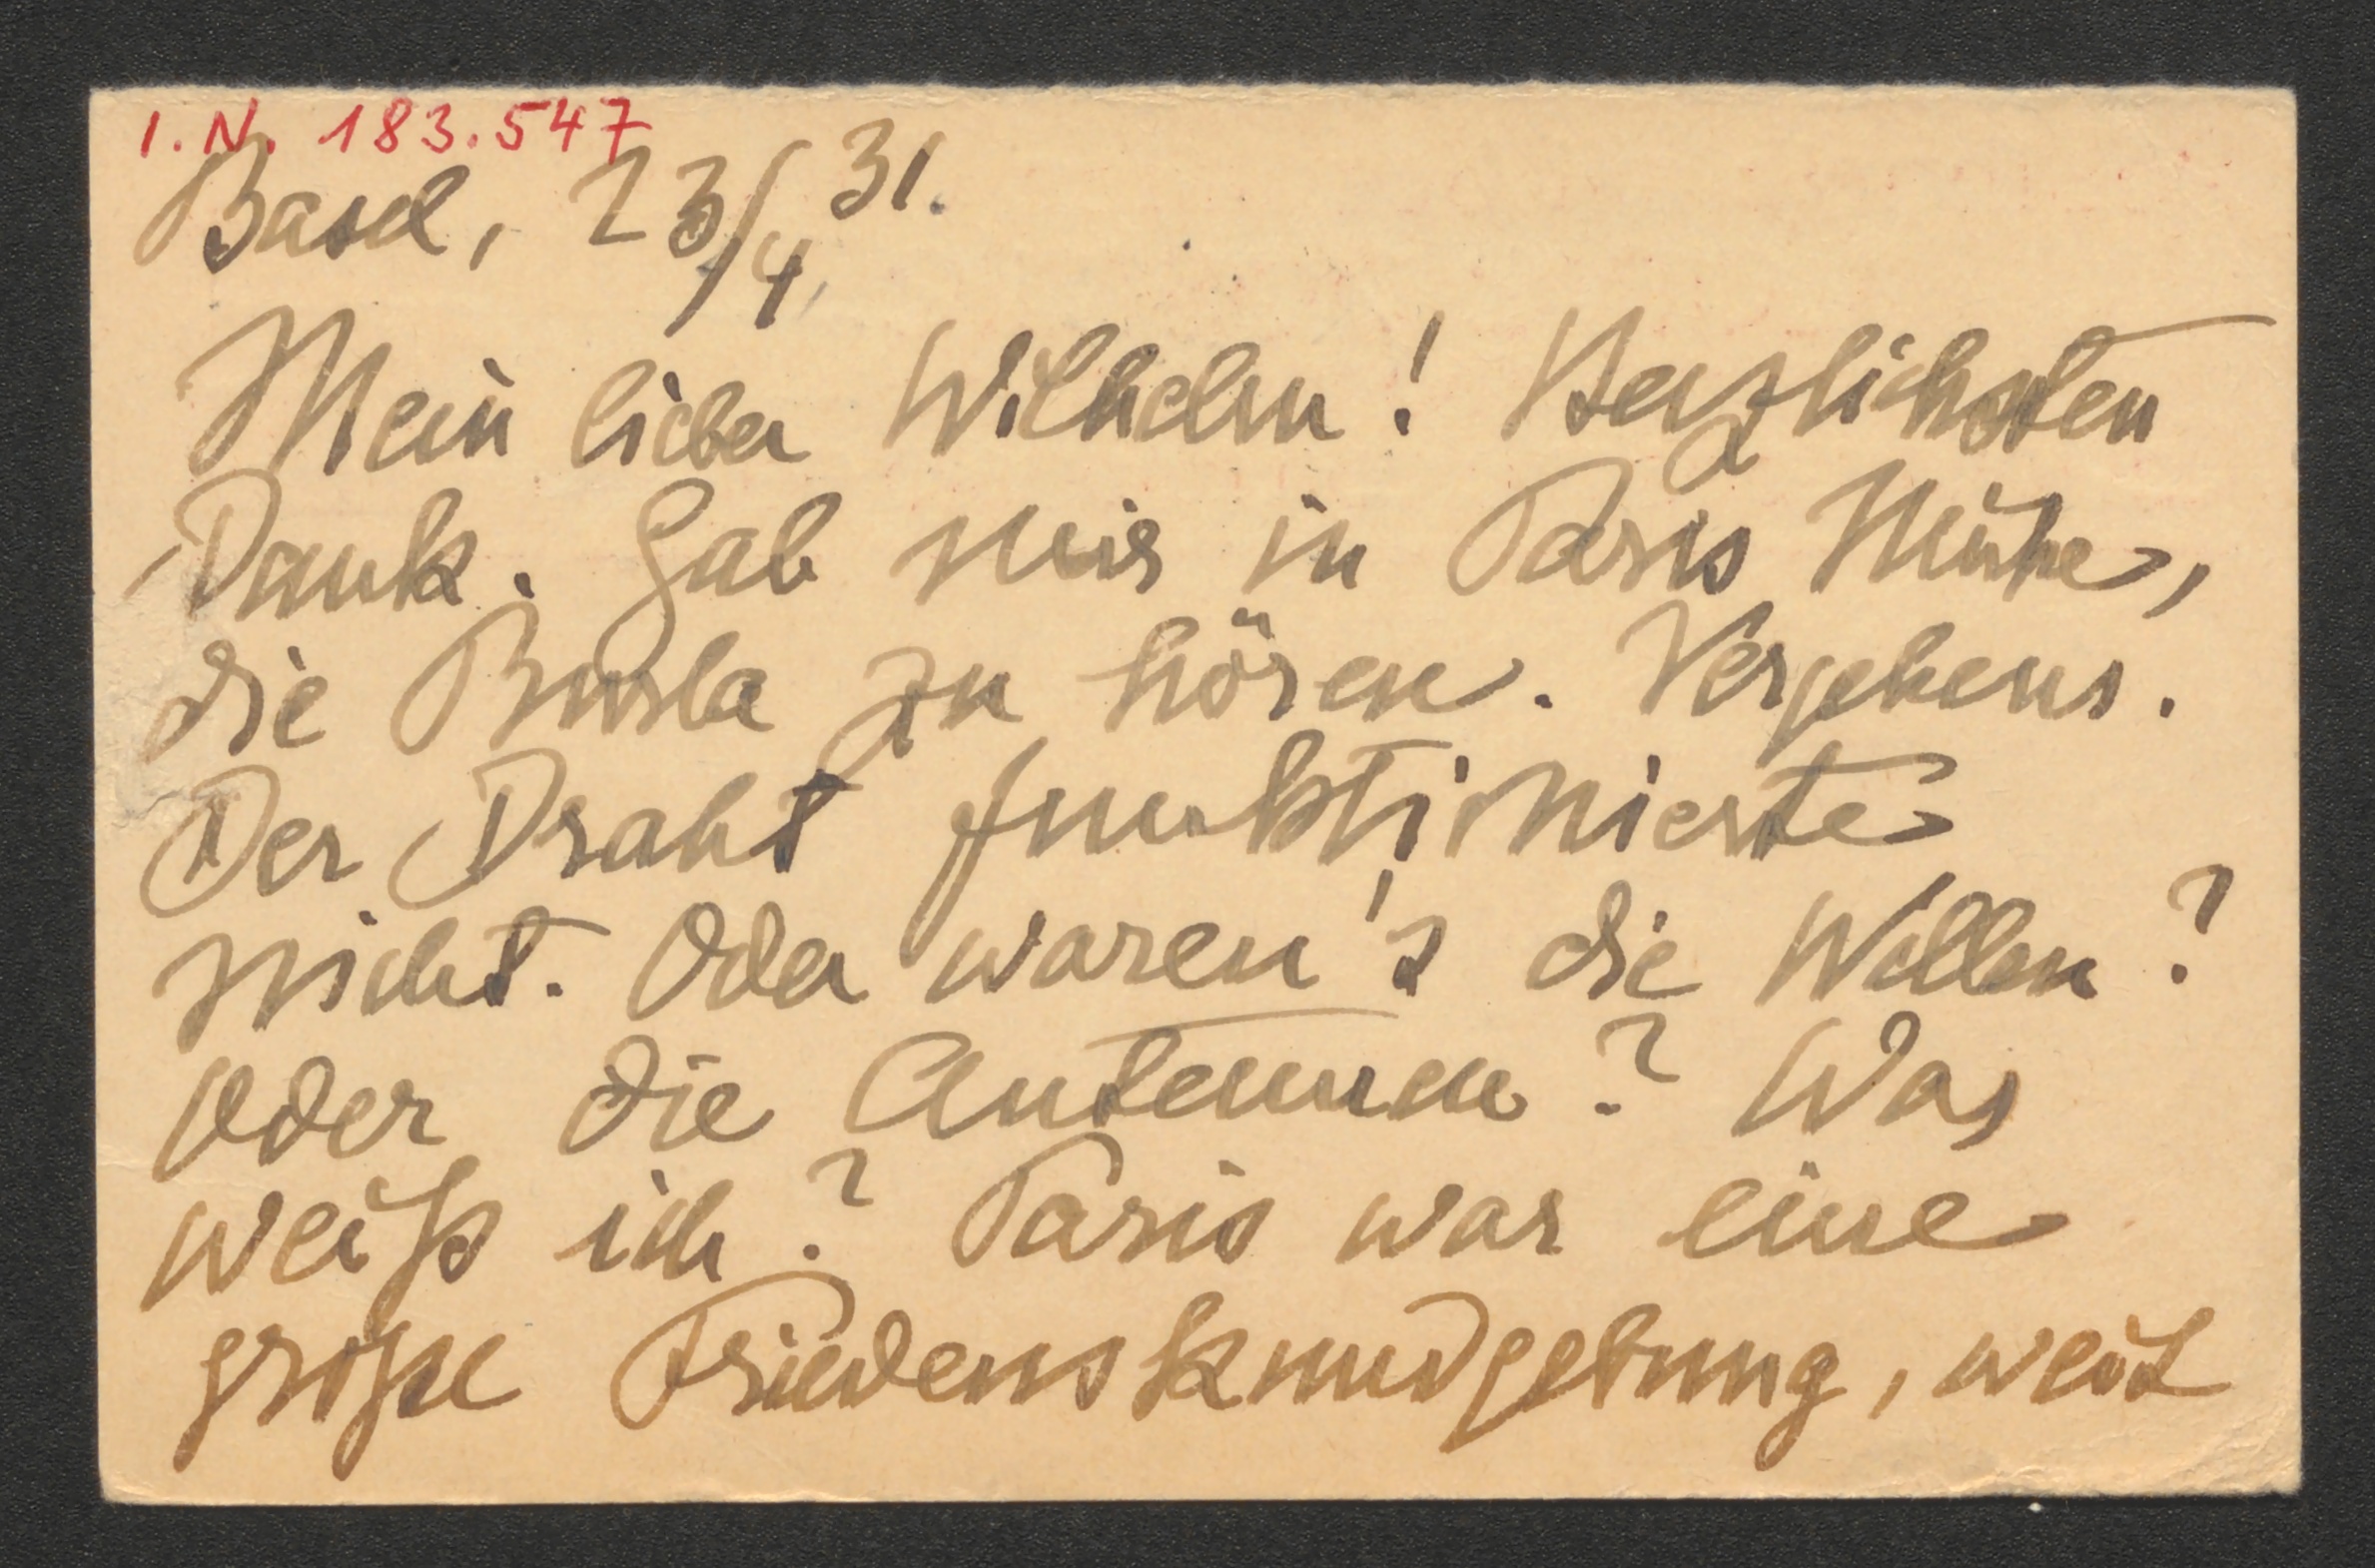 I.N. 183.547
Basel, 23/4, 31.
Mein lieber Wilhelm! Herzlichsten
Dank. Gab mir in Paris Mühe,
die Burla zu hören. Vergebens.
Der Draht funktionierte
nicht. Oder waren's die Wellen?
Oder die Antennen? Was
weiß ich? Paris war eine
große Friedenskundgebung, weit